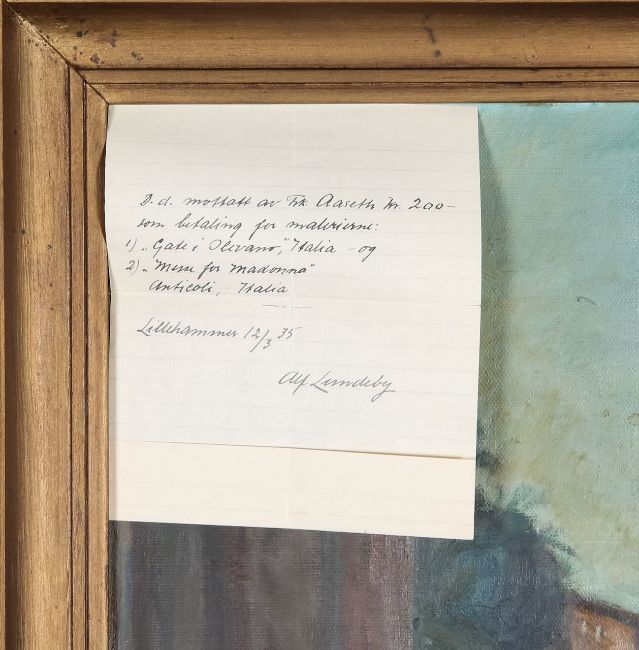 D.d. mottatt av Frk. Aaseth kr. 200–
som betaling for malerierne:
1) „Gate i Olevano", Italia – og
2) „Messe for Madonna"
Anticoli, – Italia
Lillehammer 12/3 35
Alf Lundeby